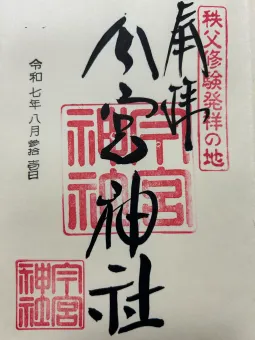 秩父修験発祥の地
奉拝
今宮神社
令和七年八月拾壱日
今宮
神社
今宮
神社